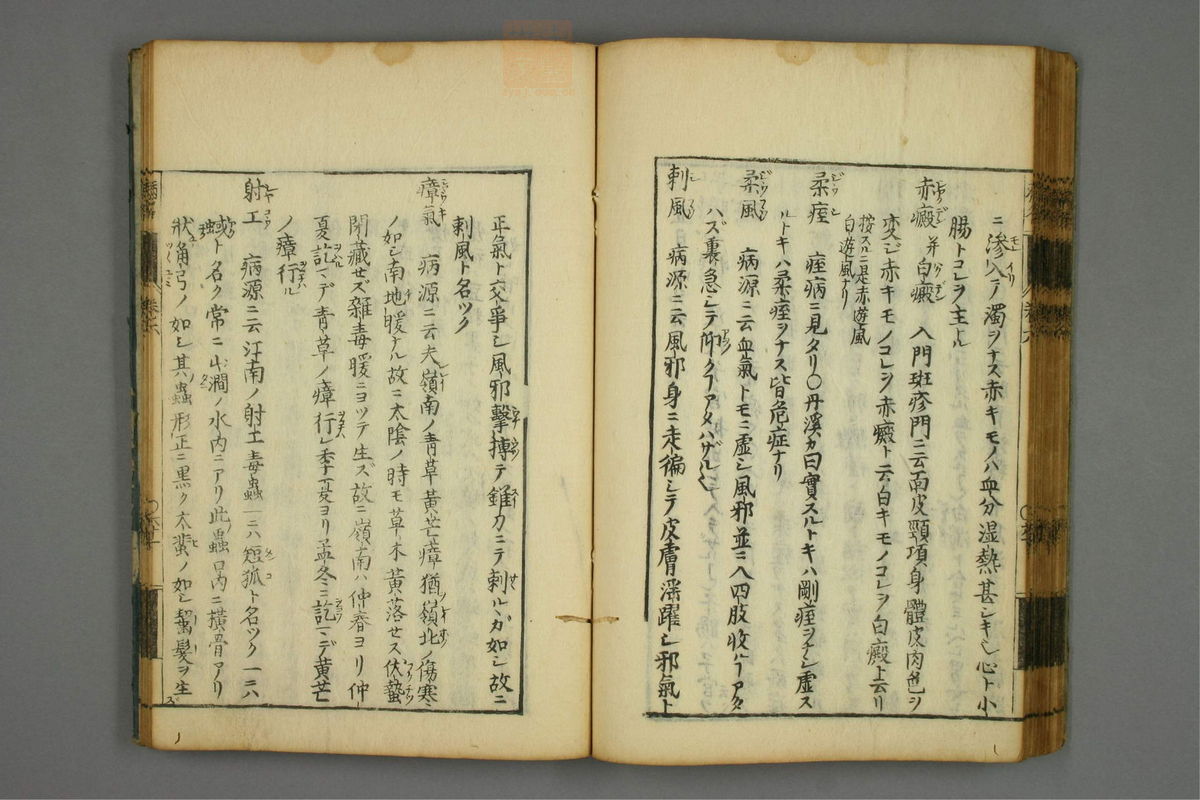 ニ滲入シテ濁ヲナス赤キモノハ血分湿熱甚シキナシ心ト小
腸トコレヲ主ル
赤癜 并白癜 入門斑疹門ニ云面皮頸項身體皮肉色ヲ
変シ赤キモノコレヲ赤癜ト云白キモノコレヲ白癜ト云リ
按スルニ是赤遊風
白遊風ナリ
柔痓 痓病ニ見タリ○丹溪カ曰實スルトキハ剛痓ヲナシ虚ス
ルトキハ柔痓ヲナス皆危症ナリ
柔風 病源ニ云血氣トモニ虚シ風邪並ニ入四肢收ルアタ
ハズ裏急シテ仰クアタハザル
刺風 病源ニ云風邪身ニ走徧シテ皮膚淫躍シ邪氣ト
正氣ト交爭シ風邪擊搏テ錐カニテ刺ルガ如シ故ニ
刺風ト名ツク
瘴氣 病源ニ云夫嶺南ノ青草黄芒瘴猶嶺北ノ傷寒
ノ如シ南地暖ナル故ニ太陰ノ時モ草木黄落セス伏蟄
閉藏セズ雜毒暖ニヨツテ生ズ故ニ嶺南ハ仲春ヨリ仲
夏訖マデ青草ノ瘴行レ季夏ヨリ孟冬ニ訖マデ黄芒
ノ瘴行ル
射工 病源ニ云江南ノ射工毒蟲一名短狐ト名ツク一名
蜮ト名ク常ニ山澗ノ水内ニアリ此蟲口内ニ横骨アリ
狀角弓ノ如シ其蟲形正ニ黒ク大蜚ノ如シ齧髮ヲ生ズ